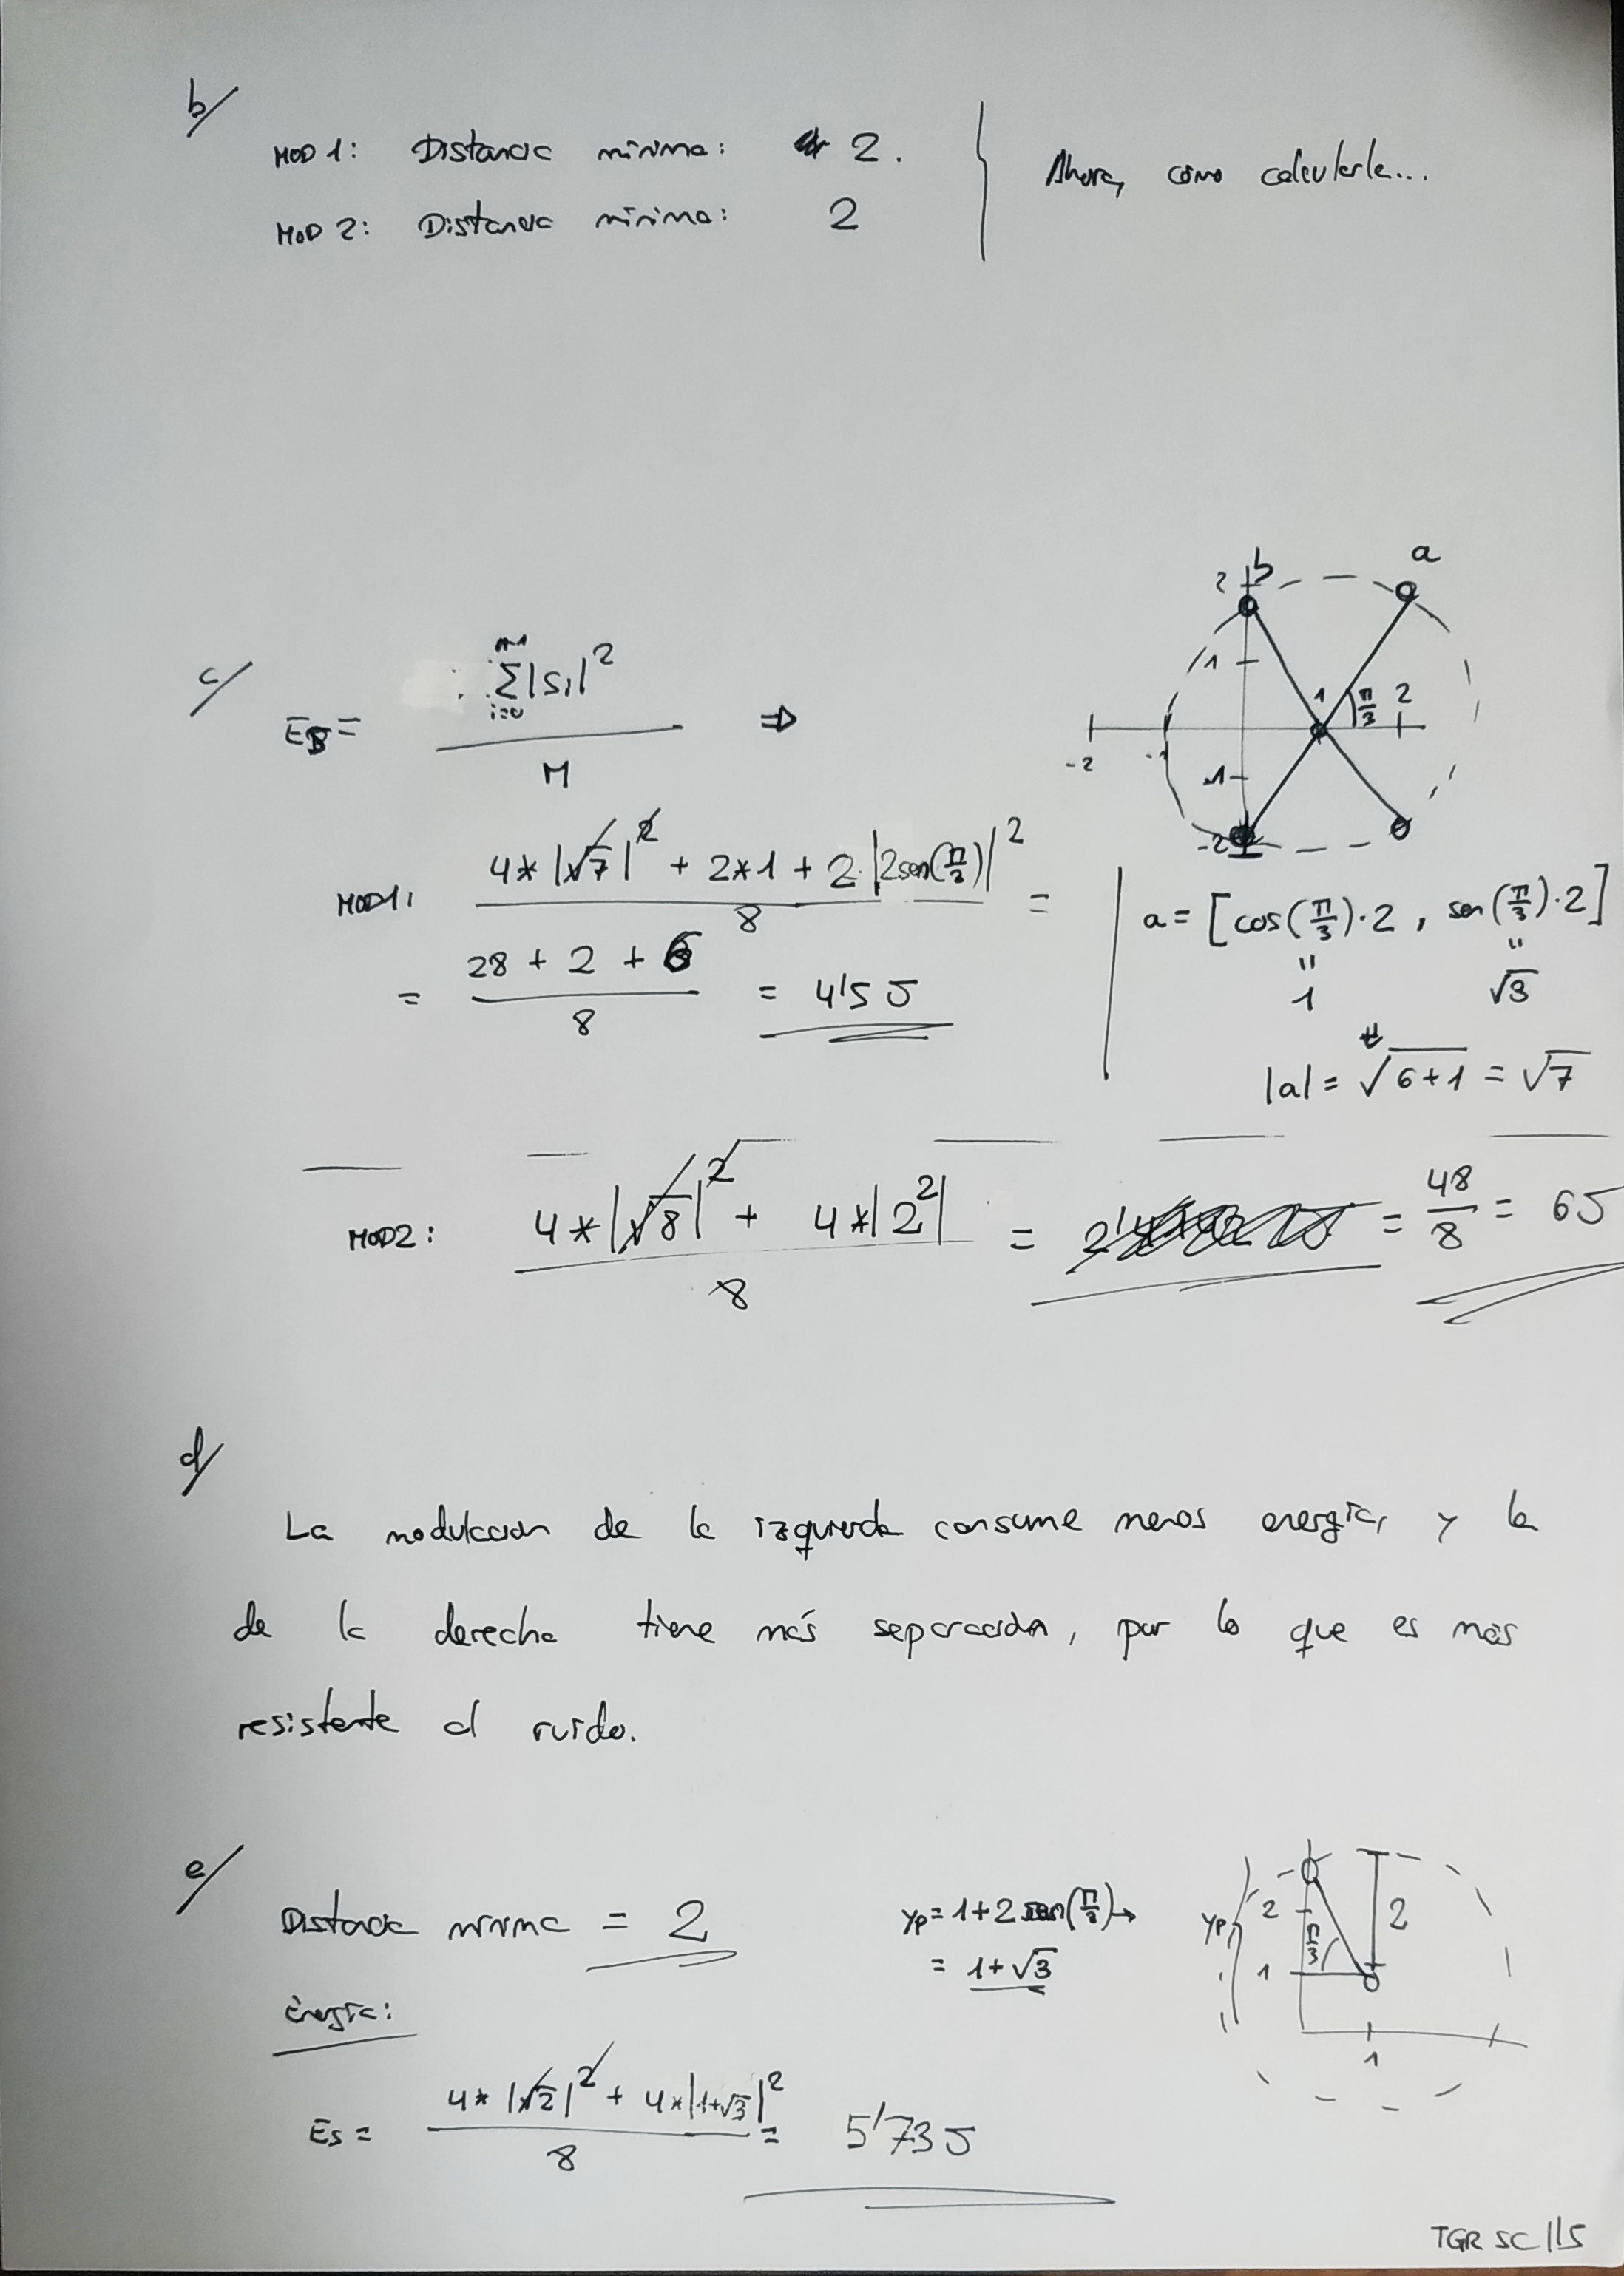 b/
MOD 1: Distancia mínima: 2.
MOD 2: Distancia mínima: 2
Ahora, cómo calcularla...
c/
Es = Σ|Si|² / M ⇒
M-1
i=0
b
a
2
1
-2
-1
1
π/3
2
-1
-2
MOD1: (4*|√7|² + 2*1 + 2·|2sen(π/3)|²) / 8 =
= (28 + 2 + 6) / 8 = 4'5 J
a = [cos(π/3)·2, sen(π/3)·2]
" "
1 √3
|a| = √(6+1) = √7
MOD2: (4*|√8|² + 4*|2²|) / 8 = = 48/8 = 6J
d/
La modulación de la izquierda consume menos energía, y la
de la derecha tiene más separación, por lo que es más
resistente al ruido.
e/
Distancia mínima = 2
yp = 1+2 sen(π/3) →
= 1+√3
yp
2
1
π/3
2
1
Energía:
Es = (4*|√2|² + 4*|1+√3|²) / 8 = 5'73 J
TGR SC ||5